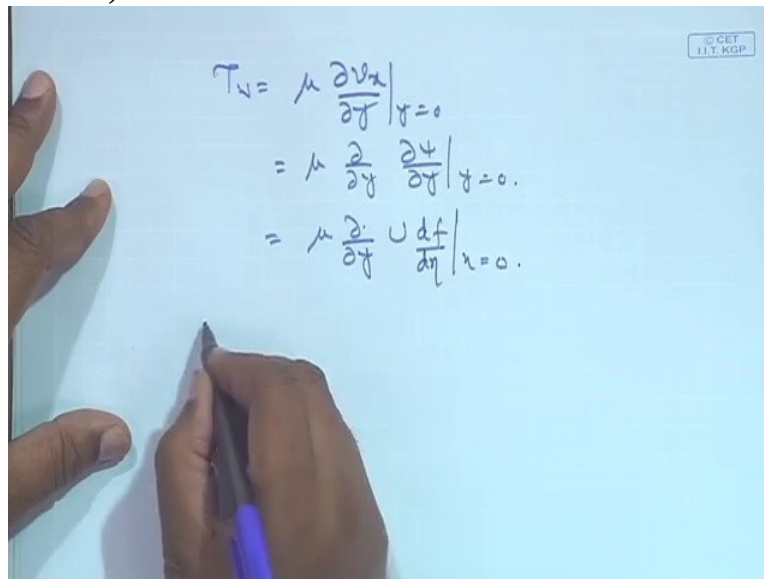 © CET
I.I.T. KGP
τw = μ ∂vx/∂y |y=0
= μ ∂/∂y ∂ψ/∂y |y=0.
= μ ∂/∂y U df/dη |η=0.